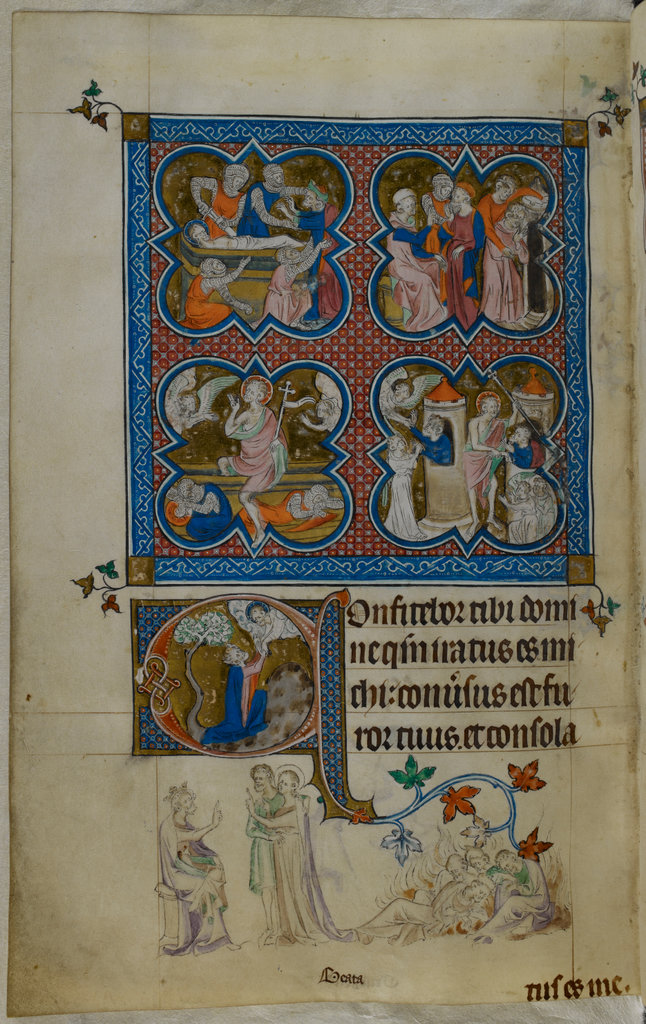 Onfitebor tibi domi
ne qm̄ iratus es mi
chi: conuͬsus est fu
ror tuus. et consola
Beata
tus es me.